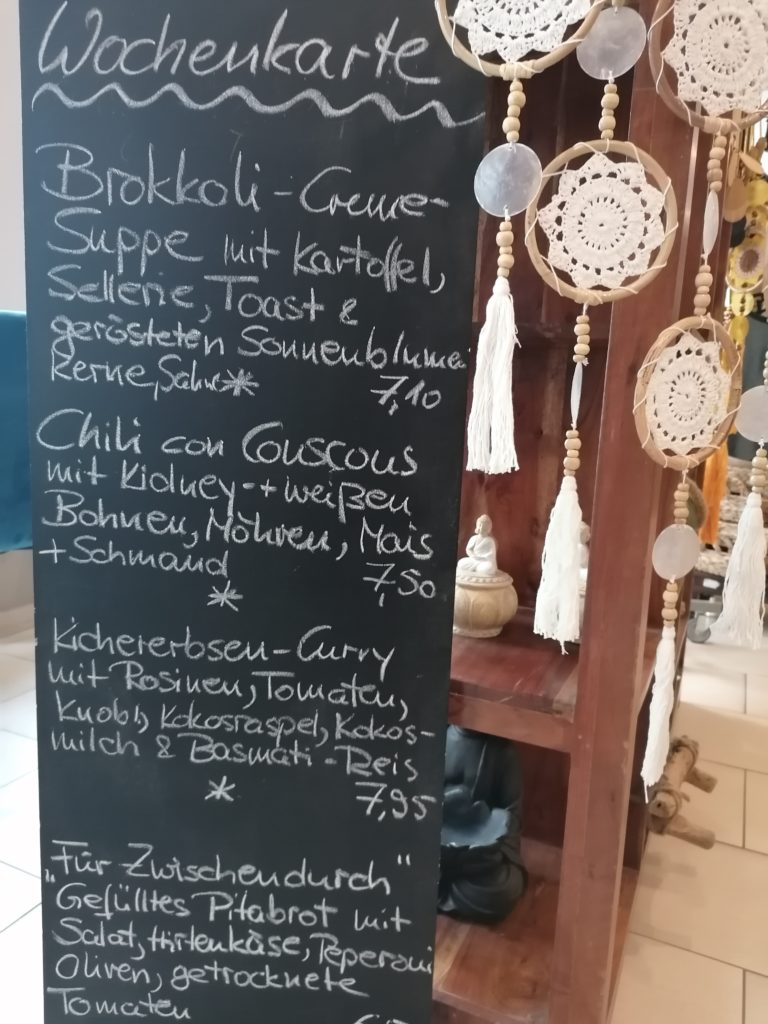 Wochenkarte
Brokkoli-Creme-
Suppe mit Kartoffel,
Sellerie, Toast &
gerösteten Sonnenblumen
kerne, Sahne* 7,10
Chili con Couscous
mit Kidney-+weißen
Bohnen, Möhren, Mais
+Schmand 7,50
*
Kichererbsen-Curry
mit Rosinen, Tomaten,
Knobl, Kokosraspel, Kokos-
milch & Basmati-Reis
* 7,95
„Für Zwischendurch"
Gefülltes Pitabrot mit
Salat, Hirtenkäse, Peperoni
Oliven, getrocknete
Tomaten